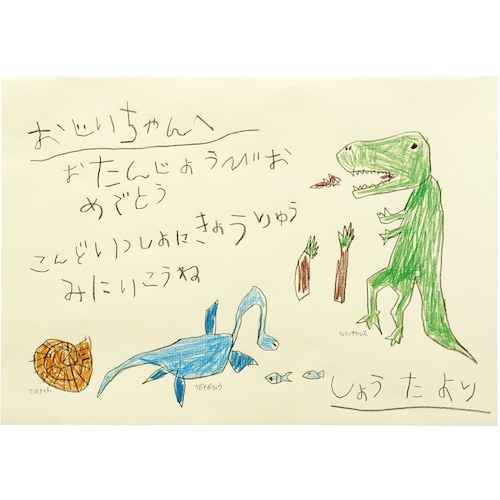 おじいちゃんへ
おたんじょうびお
めでとう
こんどいっしょにきょうりゅう
みたりこうね
アンモナイト
フタバサウルス
しょうたより